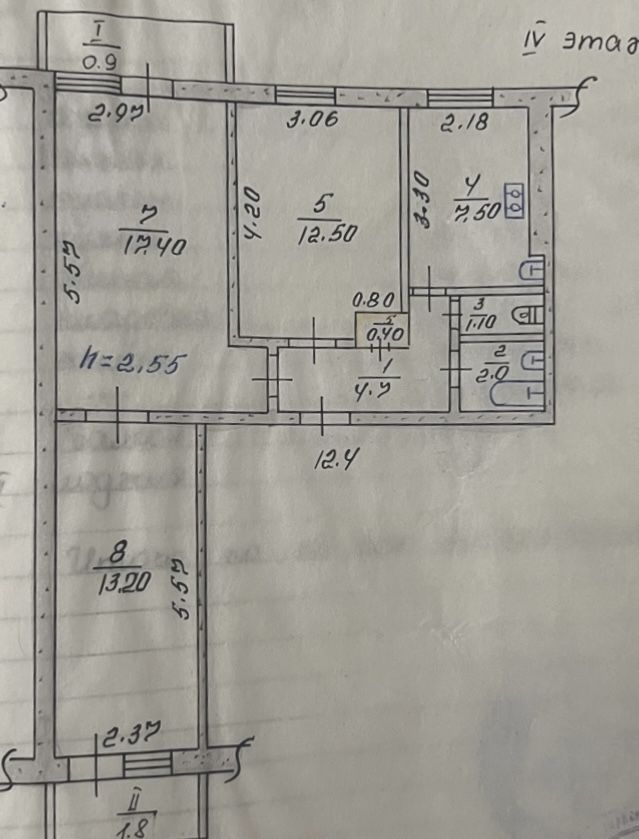 IV этаж
I
0.9
2.97
3.06
2.18
5.57
7
17.40
4.20
5
12.50
3.30
4
7.50
0.80
0.40
3
1.10
h=2,55
1
4.7
2
2.0
12.4
8
13.20
5.57
2.37
II
1.8